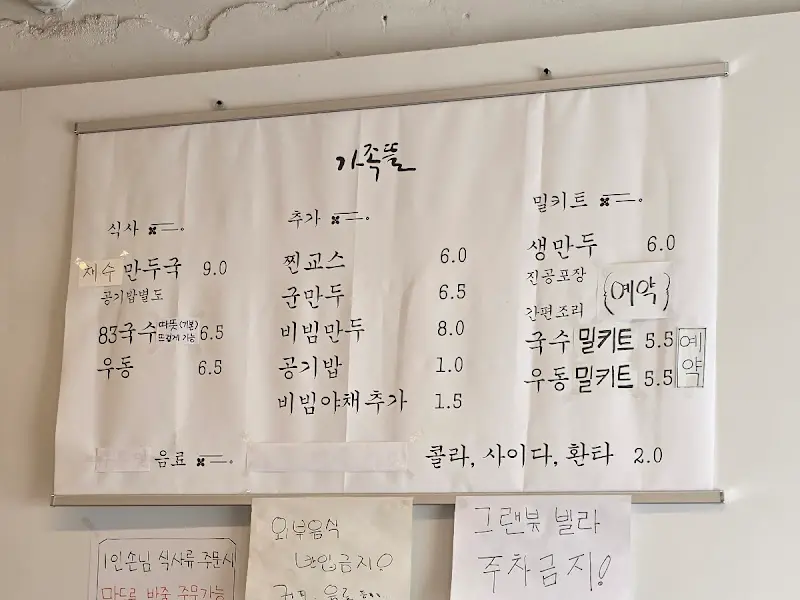 가족뜰
식사
채수 만두국 9.0
공기밥별도
83국수 따뜻(기본) 뜨겁게 가능 6.5
우동 6.5
추가
찐교스 6.0
군만두 6.5
비빔만두 8.0
공기밥 1.0
비빔야채추가 1.5
밀키트
생만두 6.0
진공포장
간편조리
(예약)
국수밀키트 5.5
우동밀키트 5.5
예약
음료
콜라, 사이다, 환타 2.0
1인손님 식사류 주문시
만두도 반줄 주문가능
외부음식
반입금지!
그랜뷰 빌라
주차금지!